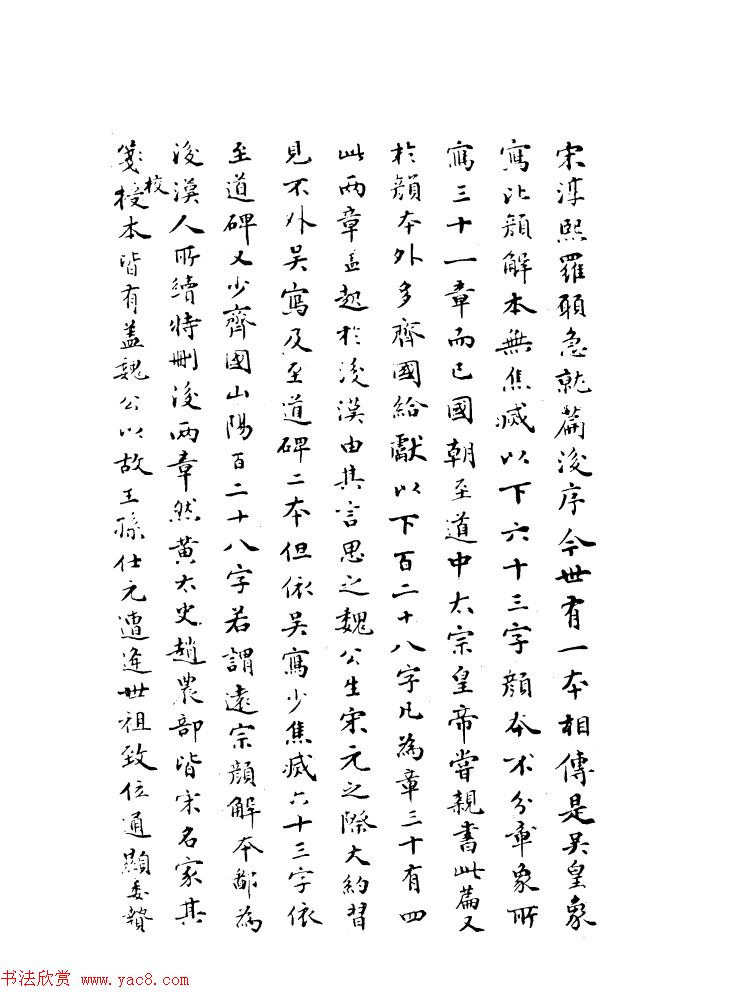 宋淳熙羅願急就篇後序今世有一本相傳是吴皇象
寫比顏解本無焦滅以下六十三字顏本不分章象所
寫三十一章而已國朝至道中太宗皇帝嘗親書此篇又
於顏本外多齊國給獻以下百二十八字凡為章三十有四
此兩章盖起於後漢由其言思之魏公生宋元之際大約習
見不外吴寫及至道碑二本但依吴寫少焦滅六十三字依
至道碑又少齊國山陽百二十八字若謂遠宗顏解本鄙為
後漢人所續特刪後兩章然黄太史趙農部皆宋名家其
箋授校本皆有盖魏公以故王孫仕元遭逢世祖致位通顯委贄
书法欣赏 www.yac8.com